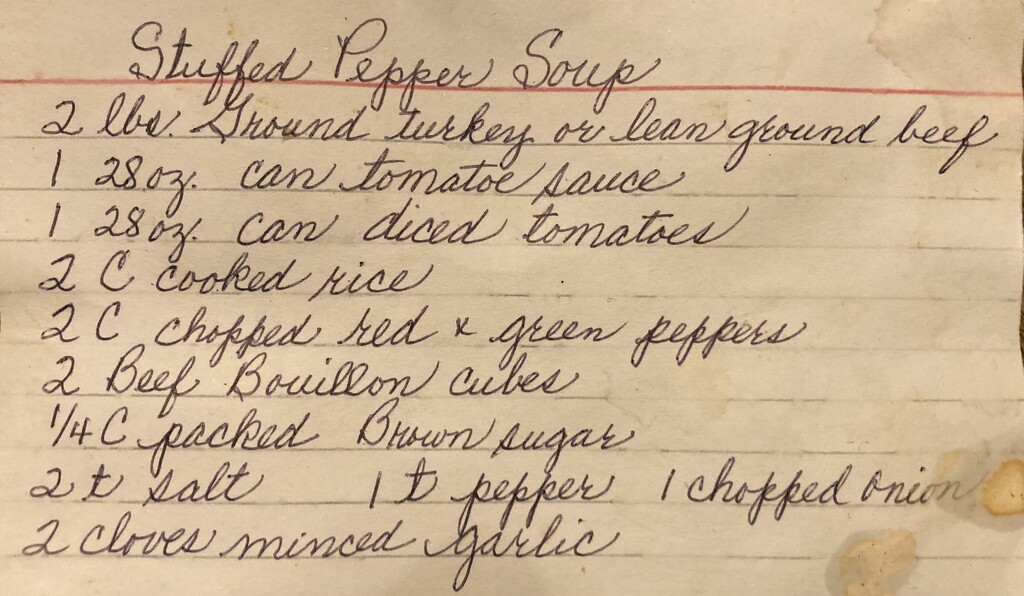 Stuffed Pepper Soup
2 lbs. Ground turkey or lean ground beef
1 28 oz. can tomatoe sauce
1 28 oz. can diced tomatoes
2 C cooked rice
2 C chopped red & green peppers
2 Beef Bouillon cubes
1/4 C packed Brown sugar
2 t salt 1 t pepper 1 chopped onion
2 cloves minced garlic